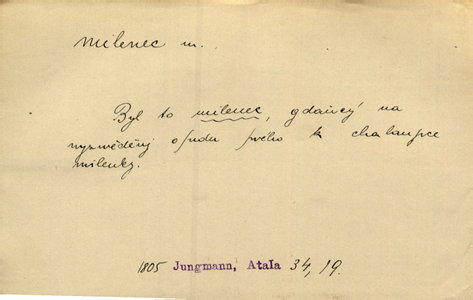 milenec m.
Byl to milenec, gdaucý na
wyzwěděnj osudu swého k chalaupce
milenky.
1805 Jungmann, Atala 34, 19.